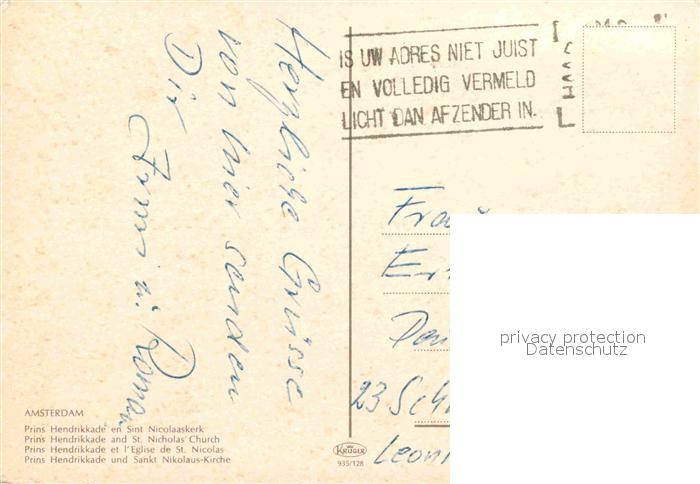 Herzliche Grüsse
von hier senden
Dir
Irma u. Roman
IS UW ADRES NIET JUIST
EN VOLLEDIG VERMELD
LICHT DAN AFZENDER IN.
Frau
Er
23 Sch
Leon
privacy protection
Datenschutz
AMSTERDAM
Prins Hendrikkade en Sint Nicolaaskerk
Prins Hendrikkade and St. Nicholas' Church
Prins Hendrikkade et l'Eglise de St. Nicolas
Prins Hendrikkade und Sankt Nikolaus-Kirche
KRÜGER
935/128